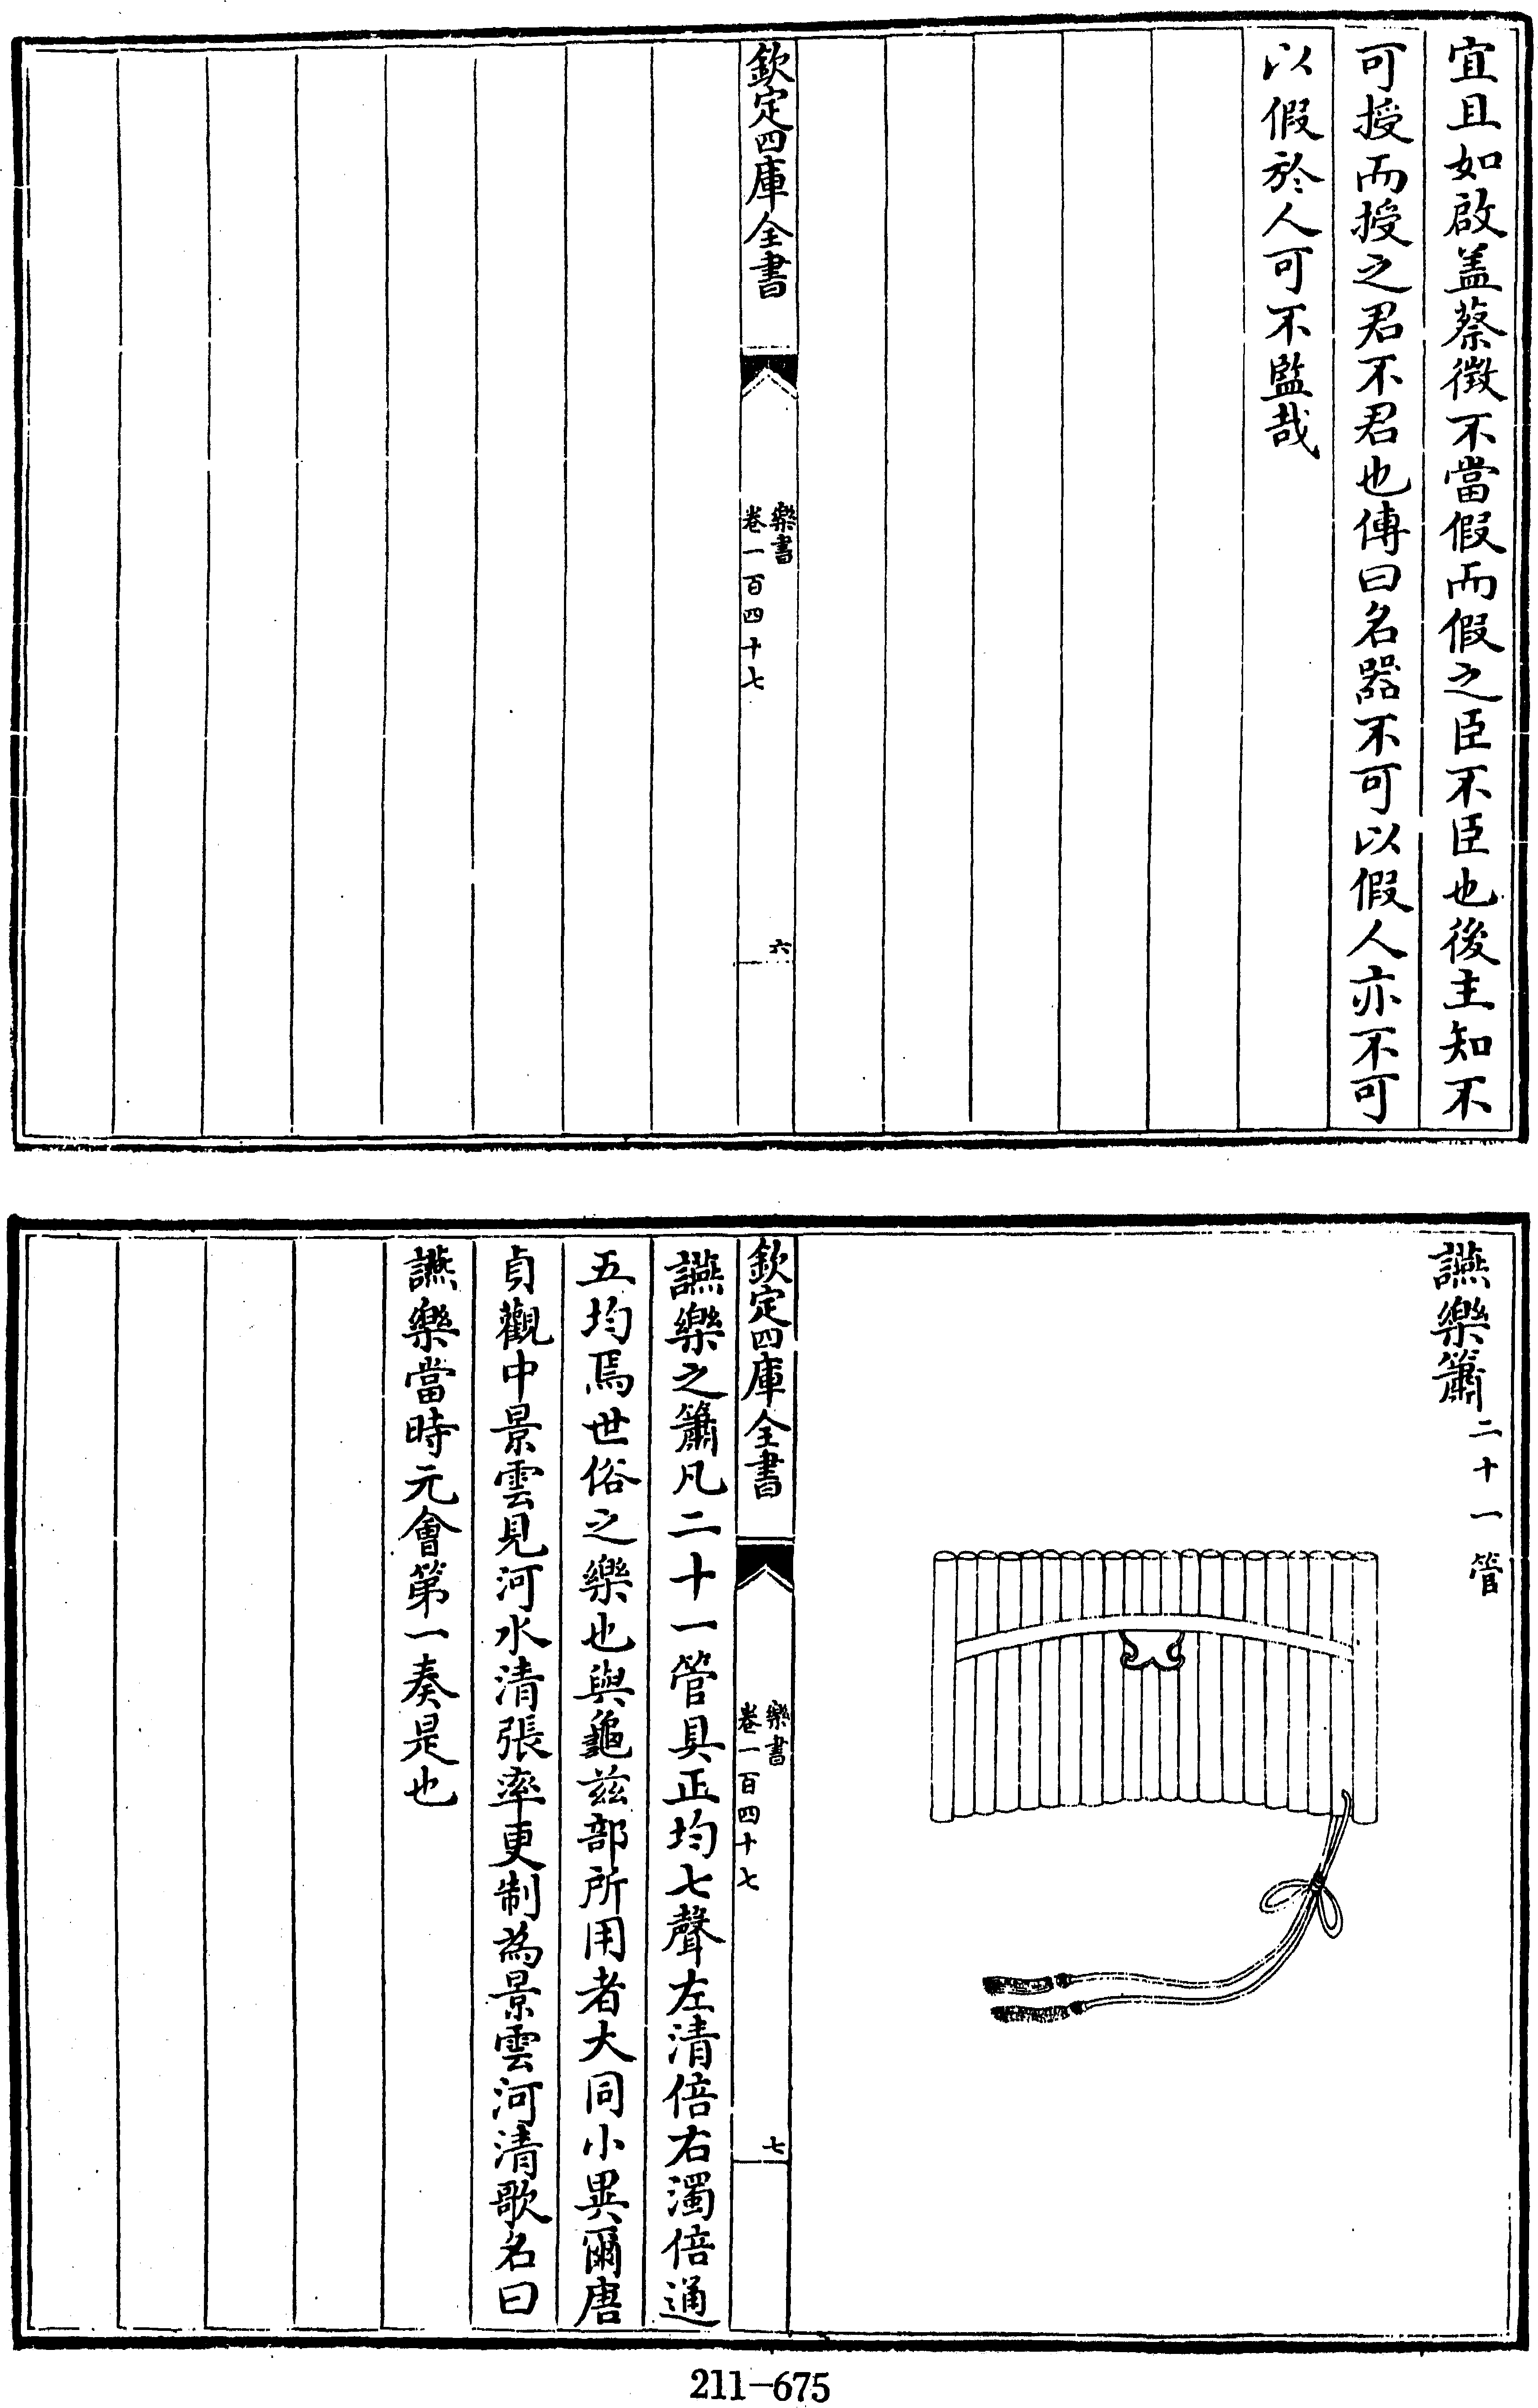 宜且如啟盖蔡徵不當假而假之臣不臣也後主知不
可授而授之君不君也傳曰名器不可以假人亦不可
以假於人可不監哉
欽定四庫全書
樂書
卷一百四十七
六
讌樂簫二十一管
欽定四庫全書
樂書
卷一百四十七
七
讌樂之簫凡二十一管具正均七聲左清倍右濁倍通
五均焉世俗之樂也與龜兹部所用者大同小異爾唐
貞觀中景雲見河水清張率更制為景雲河清歌名曰
讌樂當時元會第一奏是也
211-675